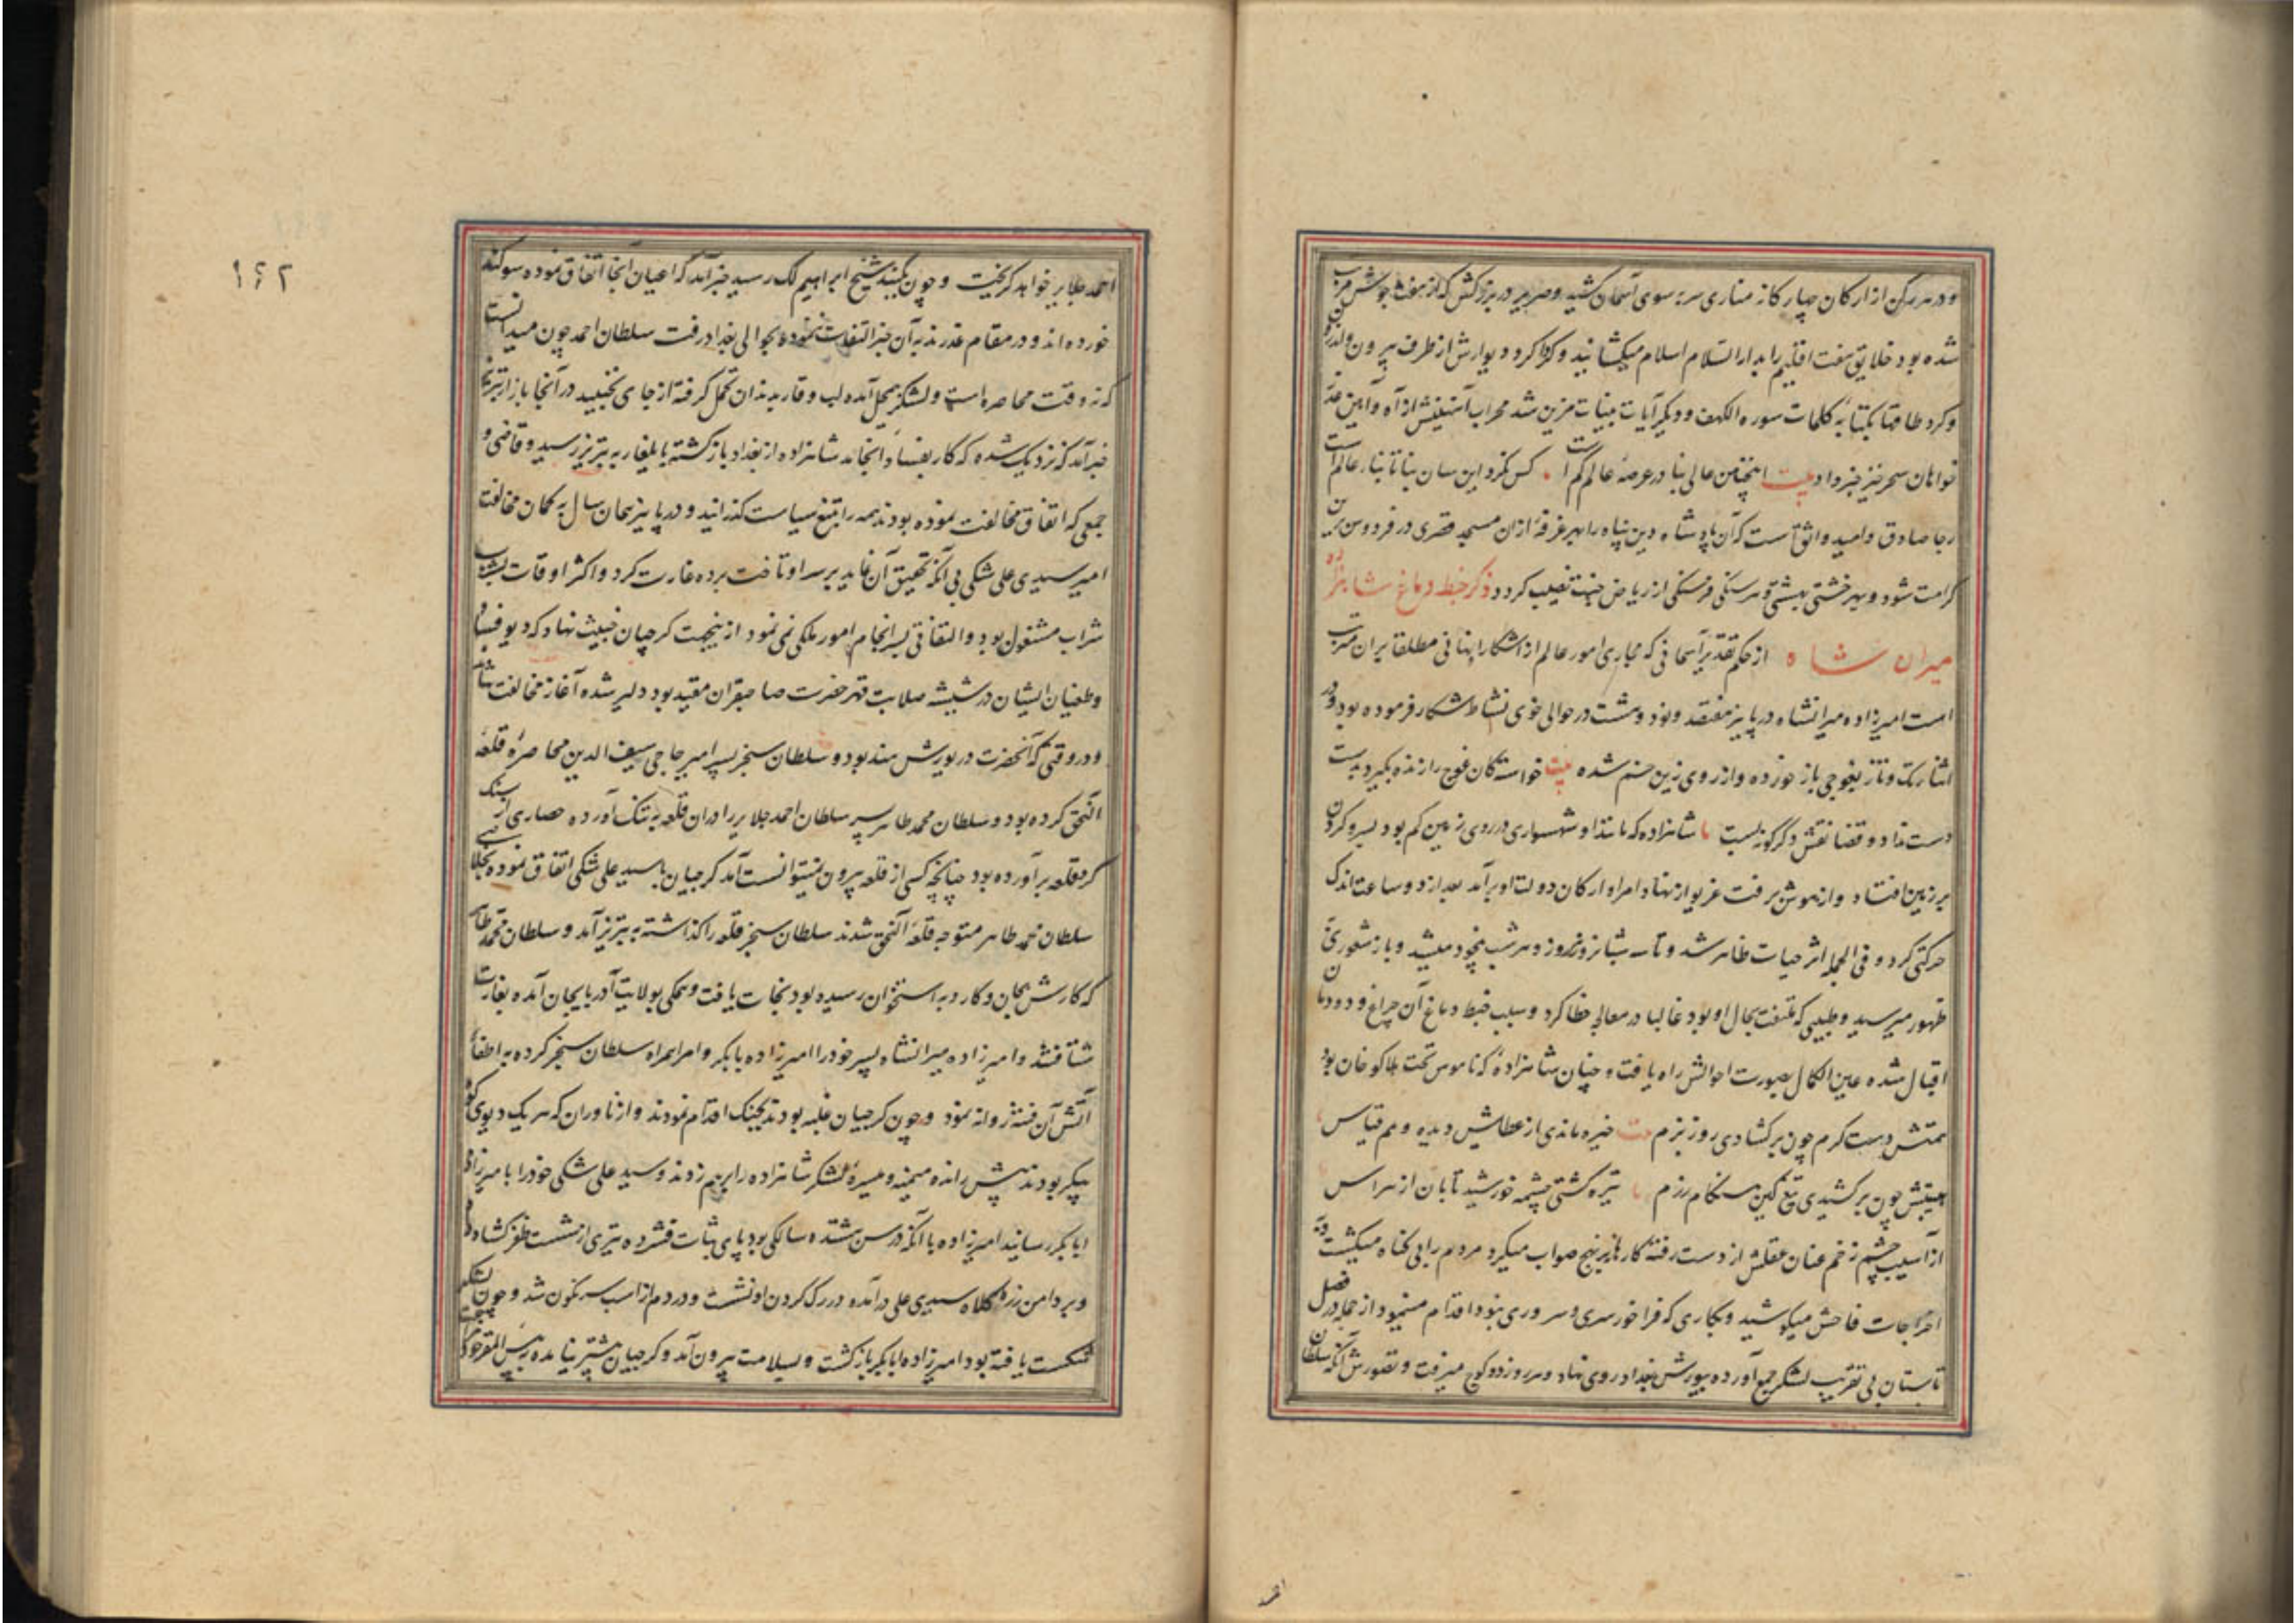 و در هر رکن از ارکان چهارگانه مناری سر بسوی آسمان کشید و صریر در بزرگش که از هفت جوش مرتب
شده بود خلایق هفت اقلیم را بدار السلام اسلام میکشانید و گرداگرد دیوارش از طرف بیرون و اندرون
و گرد طاقها بکتابه کلمات سوره الکهف و دیگر آیات بینات مزین شد محراب آستینش از آه و آمین
خواهان سحرخیز خبر داد بیت اینچنین عالی بنا در عرصهٔ عالم کم است کس نکرد این سان بنا تا بنای عالم است
رجا صادق و امید واثق است که آن پادشاه دین پناه را بهر غرفهٔ از ان مسجد قصری در فردوس برین
کرامت شود و بهر خشتی بهشتی و هر سنگی فرسنگی از ریاض جنت نصیب کردد ذکر خبط دماغ شاهزاده
میران شاه از حکم تقدیر آسمانی که مجاری امور عالم از آشکار او نهانی مطلقا بر ان مرتب
است امیرزاده میرانشاه در پاییز هفتصد و نود و هشت در حوالی خوی نشاط شکار فرموده بود و در
اثنا رنک و تاز بقوجی باز خورده و از روی زین خم شده بیت خواست کان غوج را زنده بگیرد بدست
دست نداد و قضا نقش دگرگونه بست شاهزاده که مانند او شهسواری در روی زمین کم بود بسر و گردن
بر زمین افتاد و از هوش برفت غریو از نهاد امرا و ارکان دولت او برآمد بعد از دو ساعت اندک
حرکتی کرد و فی الجمله اثر حیات ظاهر شد و تا سه شبانروز هر روز و هر شب بیخود میشد و باز شعوری
ظهور میرسید و طبیبی که ملتفت بحال او بود غالبا در معالجه خطا کرد و سبب خبط دماغ آن چراغ دودمان
اقبال شده عین الکمال بصورت احوالش راه یافت و چنان شاهزادهٔ که ناموس تخت هلاکو خان بود
همتش دست کرم چون برگشادی روز بزم بیت خیره ماندی از عطایش دیده وهم قیاس
هیبتش چون برکشیدی تیغ کین هنگام رزم تیره گشتی چشمهٔ خورشید تابان از هراس
از آسیب چشم زخم عنان عقلش از دست رفته کارها بر نهج صواب میکرد مردم را بی گناه میکشت و در
اخراجات فاحش میکوشید و بکاری که فراخور سری و سروری نبود اقدام مینمود از جمله در فصل
تابستان بی تقریب لشکر جمع آورده بیورش بغداد روی نهاد و هر روز دو کوچ میرفت و تصورش آنکه سلطان
احمد
۱۶۲
احمد جلایر خواهد گریخت و چون بگنبد شیخ ابراهیم لک رسید خبر آمد که اعیان آنجا اتفاق نموده سوکند
خورده‌اند و در مقام غدرند بآن خبر التفات ننموده بحوالی بغداد رفت سلطان احمد چون میدانست
که نه وقت محاصره است و لشکر بیمحل آمده لب وقار بدندان تحمل گرفته از جای نجنبید در آنجا باز از تبریز
خبر آمد که نزدیک شده که کار بفساد انجامد شاهزاده از بغداد بازگشته بایلغار به تبریز رسید و قاضی و
جمعی که اتفاق مخالفت نموده بودند همه را بتیغ سیاست گذرانید و در پاییز همان سال به گمان مخالفت
امیر سیدی علی شکی بی آنکه تحقیق آن نماید بر سر او تاخت برده غارت کرد و اکثر اوقات بشرب
شراب مشغول بود و التفاتی بسرانجام امور ملکی نمی نمود ازینجهت گرجیان خبیث نهاد که دیو فساد
و طغیان ایشان در شیشه صلابت قهر حضرت صاحبقران مقید بود دلیر شده آغاز مخالفت نهادند
و در وقتی که آنحضرت در یورش هند بود و سلطان سنجر پسر امیر حاجی سیف الدین محاصرهٔ قلعه
النجق کرده بود و سلطان محمد طاهر پسر سلطان احمد جلایر را در ان قلعه به تنگ آورده حصاری از سنک
گرد قلعه برآورده بود چنانچه کسی از قلعه بیرون نمیتوانست آمد گرجیان با سیدی علی شکی اتفاق نموده بحمایت
سلطان محمد طاهر متوجه قلعه النجق شدند سلطان سنجر قلعه را گذاشته به تبریز آمد و سلطان محمد طاهر
که کارش بجان و کارد به استخوان رسیده بود نجات یافت و همگی بولایت آذربایجان آمده بغارت
شتافتند و امیر زاده میرانشاه پسر خود را امیرزاده ابابکر و امرا همراه سلطان سنجر کرده به اطفاء
آتش آن فتنه روانه نمود و چون گرجیان غلبه بودند بجنک اقدام نمودند و از ناوران که هر یک دیوی کوه
پیکر بودند پیش رانده میمنه و میسرهٔ لشکر شاهزاده را برهم زدند و سیدی علی شکی خود را بامیرزاده
ابابکر رسانید امیرزاده با آنکه در سن هشتده سالگی بود پای ثبات فشرده تیری از شست ظفر گشاد داد
و بر دامن زره کلاه سیدی علی درآمده در رگ گردن او نشست و در دم از اسب سرنگون شد و چون لشکر
شکست یافته بود امیرزاده ابابکر بازگشت و بسلامت بیرون آمد و گرجیان پیشتر نیامده به بئس المقر خود مراجعت